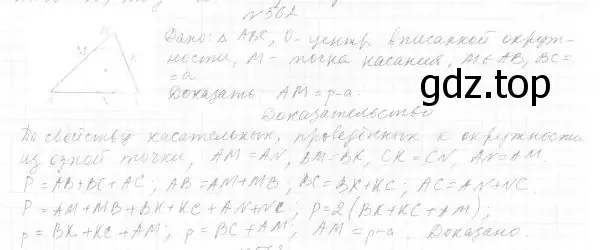 №562
Дано: △ ABC, O - центр вписанной окруж-
ности, M - точка касания, M ∈ AB, BC =
= a
gdz.top
Доказать AM = p-a.
Доказательство
По свойству касательных, проведённых к окружности
из одной точки, AM = AN, BM = BK, CK = CN, AN = AM.
P = AB+BC+AC; AB = AM+MB, BC = BK+KC; AC = AN+NC.
P = AM+MB+BK+KC+AN+NC; p = 2(BK+KC+AM);
p = BK+KC+AM; p = BC+AM; AM = p-a. Доказано.